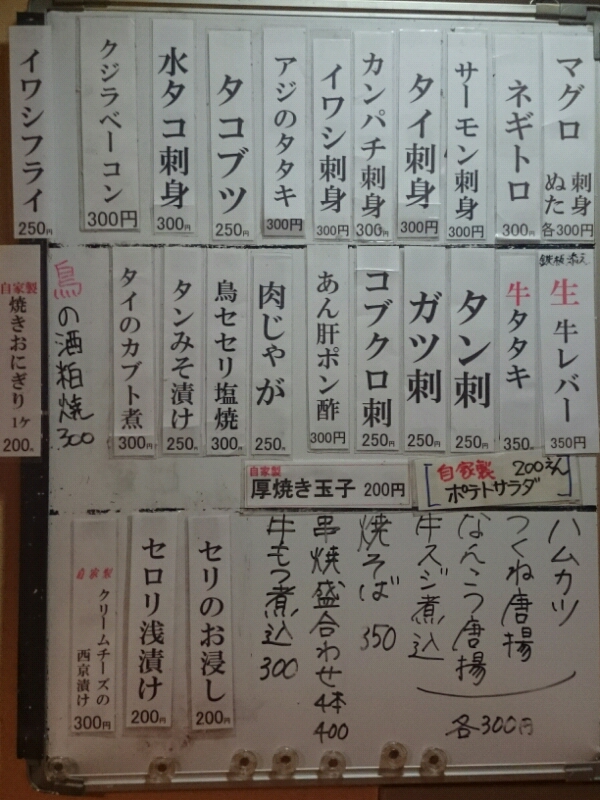 マグロ 刺身 ぬた 各300円
ネギトロ 300円
サーモン刺身 300円
タイ刺身 300円
カンパチ刺身 300円
イワシ刺身 300円
アジのタタキ 300円
タコブツ 250円
水タコ刺身 300円
クジラベーコン 300円
イワシフライ 250円
鉄板添え
生牛レバー 350円
牛タタキ 350円
タン刺 250円
ガツ刺 250円
コブクロ刺 250円
あん肝ポン酢 300円
肉じゃが 250円
鳥セセリ塩焼 300円
タンみそ漬け 250円
タイのカブト煮 300円
鳥の酒粕焼 300
自家製 焼きおにぎり 1ケ 200円
自家製 ポテトサラダ 200えん
自家製 厚焼き玉子 200円
ハムカツ
つくね唐揚
なんこつ唐揚
牛スジ煮込
各300円
焼そば 350
串焼盛合わせ 4本 400
牛もつ煮込 300
セリのお浸し 200円
セロリ浅漬け 200円
自家製 クリームチーズの
西京漬け 300円